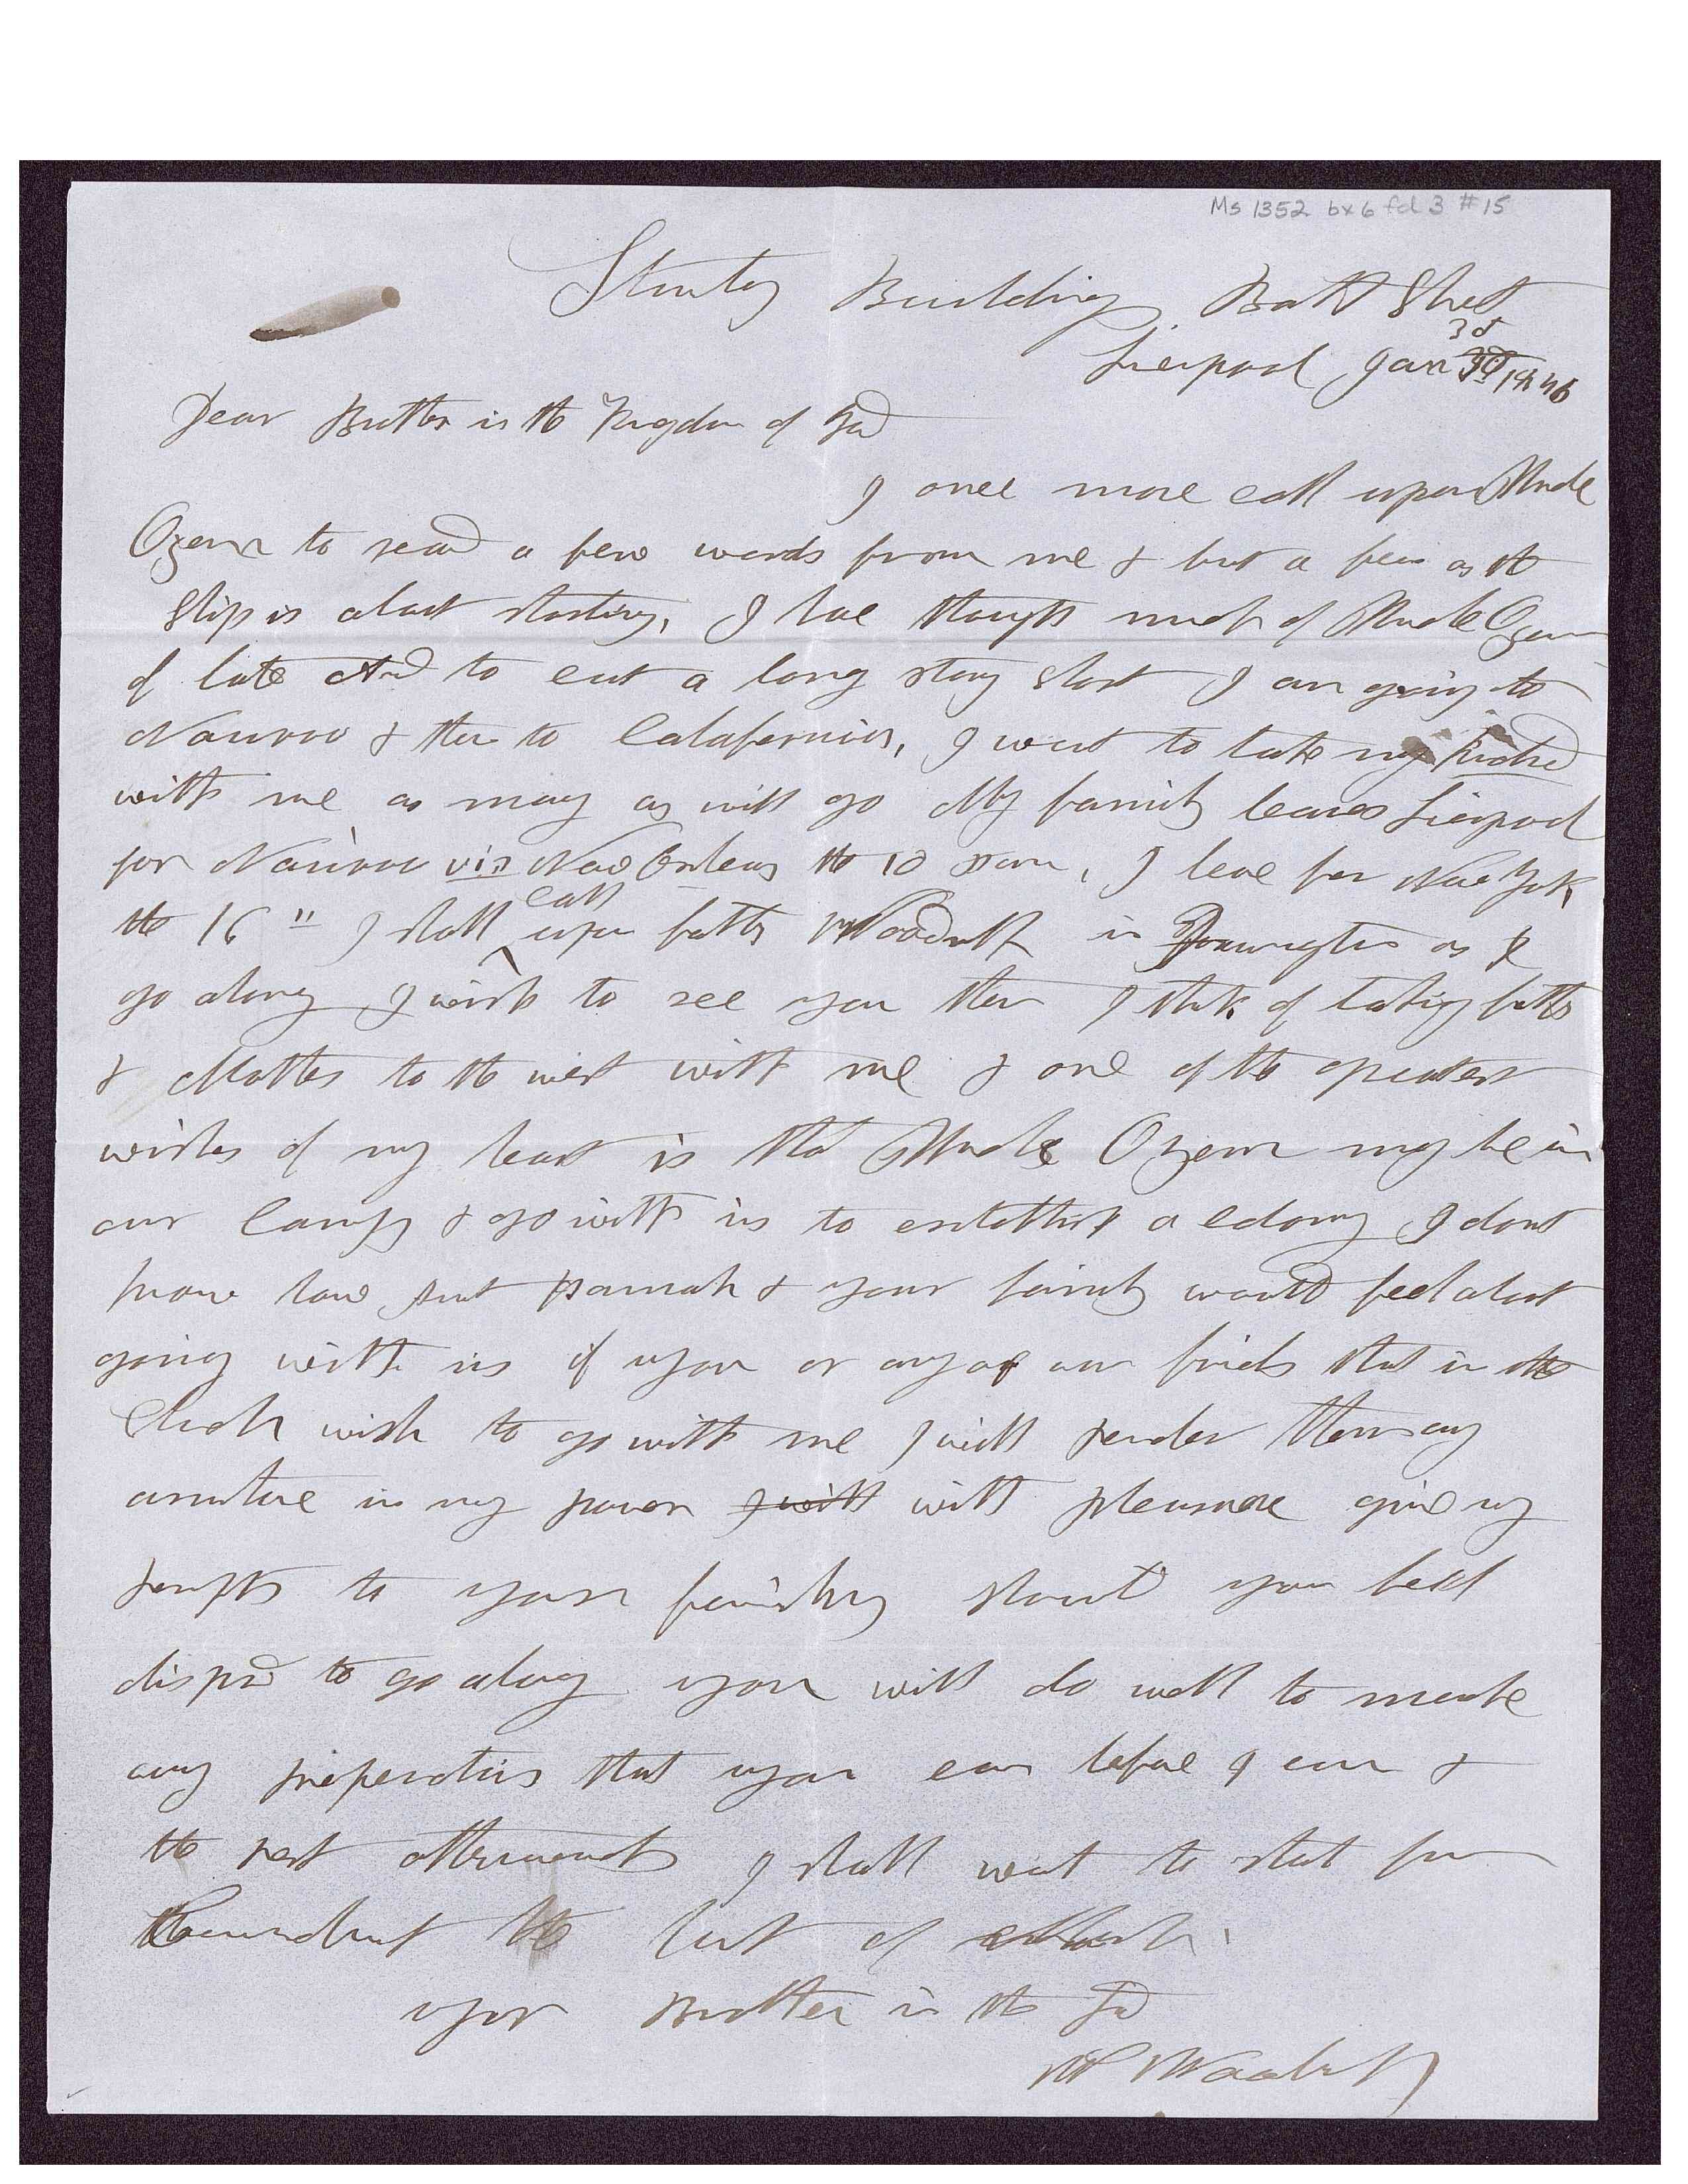 Ms 1352 bx 6 fd 3 #15
Stanley Buildings Bath Street
Liverpool Jan 3d 1846
Dear Brother in the Kingdom of God
I once more call upon Uncle
Ozem to read a few words from me & but a few as the
Ship is about starting, I have thought much of Uncle Ozem
of late And to cut a long story short I am going to
Nauvoo & then to Calafornia, I want to take my kindred
with me as many as will go My family leaves Liverpool
for Nauvoo via New Orleans the 10 I leave for New York
the 16" I shall call upon father Woodruff in Farmington as I
go along I wish to see you there I think of taking father
& Mother to the west with me & one of the greatest
wishes of my heart is that Uncle Ozem may be in
our Camp & go with us to establish a colony I dont
know how Aunt Hannah & your family would feel about
going with us if you or any of our friends that in the
Church wish to go with me I will render them any
assistance in my power I will with pleasure give my
respects to your family should you feel
disposed to go along you will do well to make
any preperations that you can before I come &
the rest afterwards I shall want to start from
Connecticut the last of March.
your Brother in the
W Woodruff